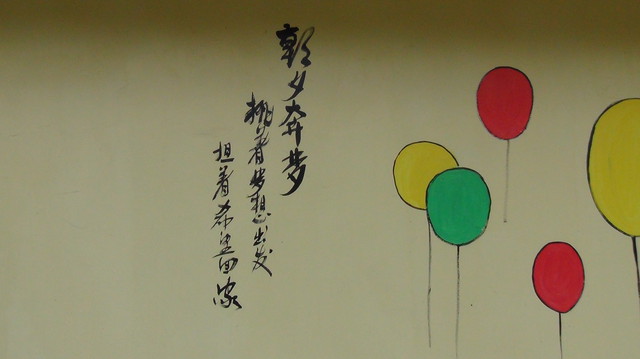 朝夕奔梦
挑着梦想出发
担着希望回家